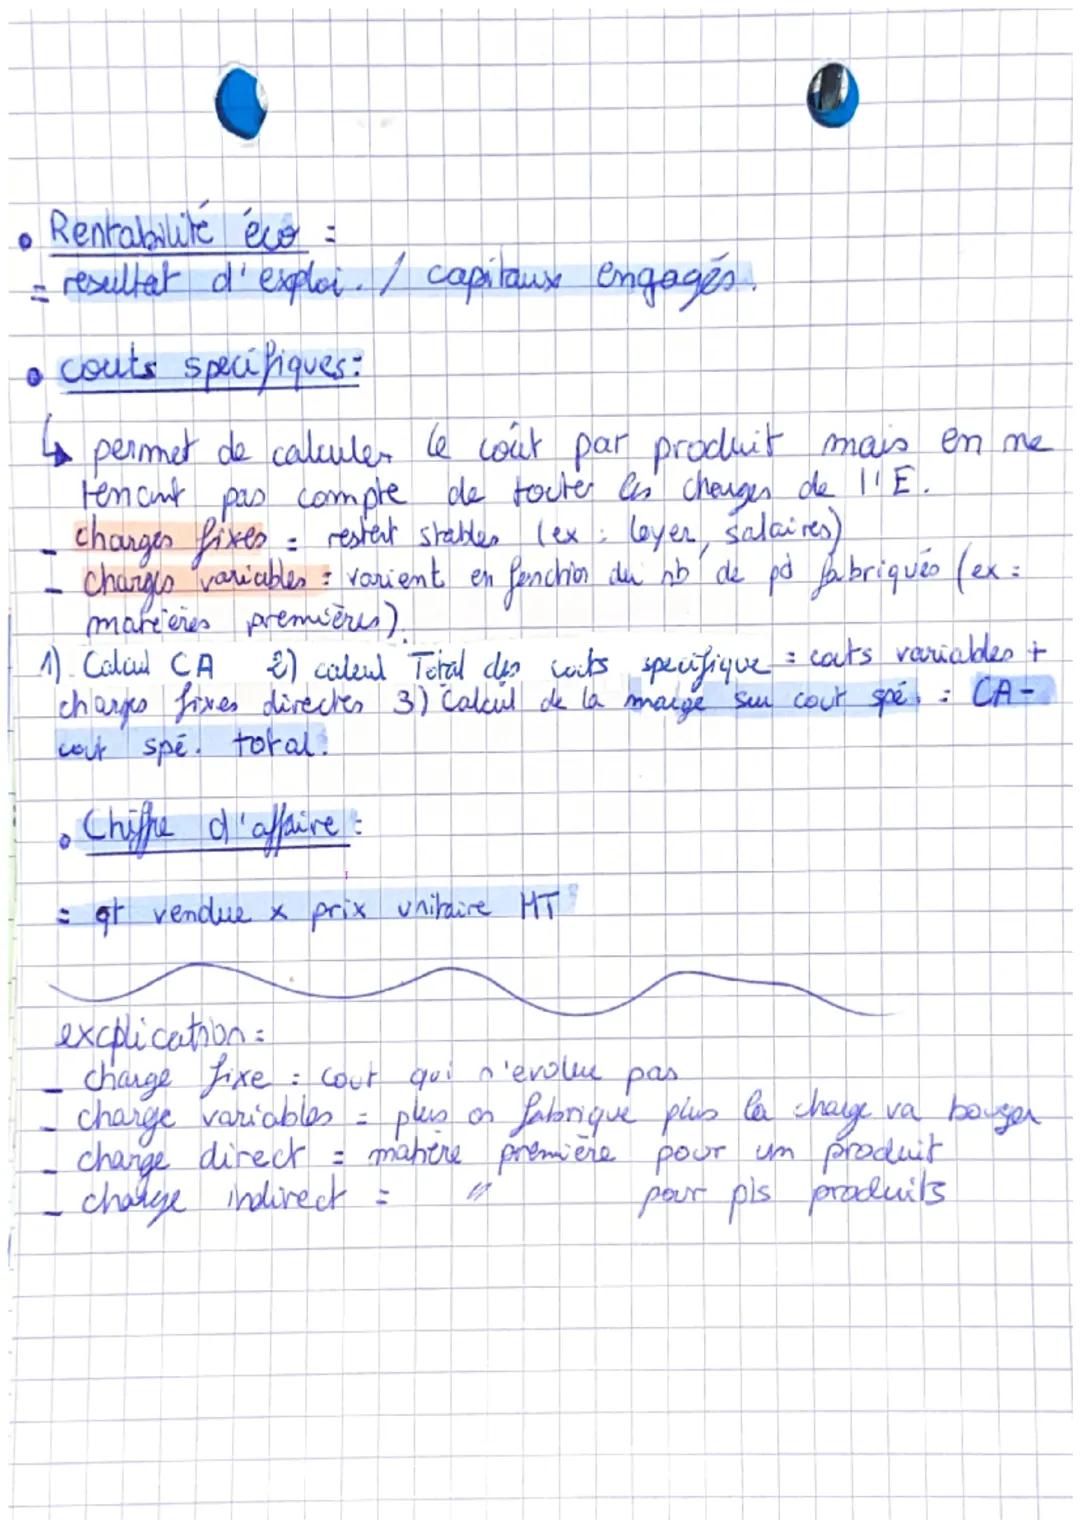 • Rentabilité éco =
= resultat d'exploi. / capitaux engagés.
• couts specifiques:
↳ permet de calculer le coût par produit mais en ne
tenant pas compte de toutes les charges de l'E.
- charges fixes = restent stables (ex : loyer, salaires)
- charges variables : varient en fonction du nb de pd fabriqués (ex :
matières premières).
1) Calcul CA 2) calcul Total des couts specifique = couts variables +
charges fixes directes 3) Calcul de la marge sur cout spé. = CA -
cout spé. total.
• Chiffre d'affaire :
= qt vendue x prix unitaire HT
excplication =
- charge fixe : cout qui n'evolue pas
- charge variables = plus on fabrique plus la charge va bouger
- charge direct = matière première pour un produit
- charge indirect = " pour pls produits